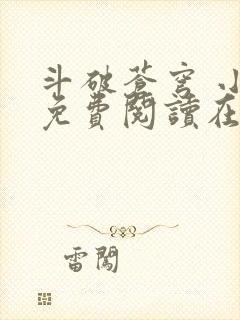 斗破苍穹 小
免費閱讀在
雷闖